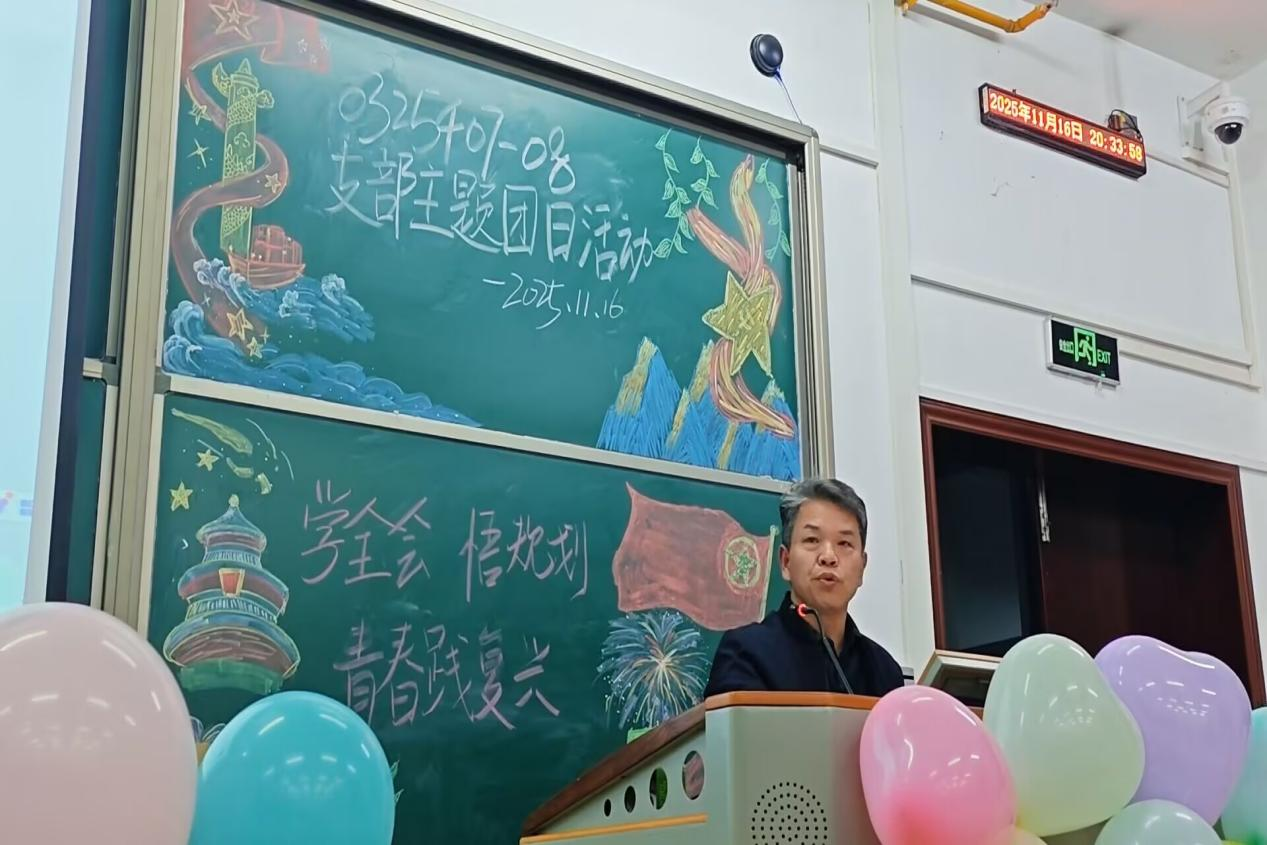 0325407-08
支部主题团日活动
-2025.11.16
学全会 悟规划
青春践复兴
2025年11月16日 20:33:58
EXIT